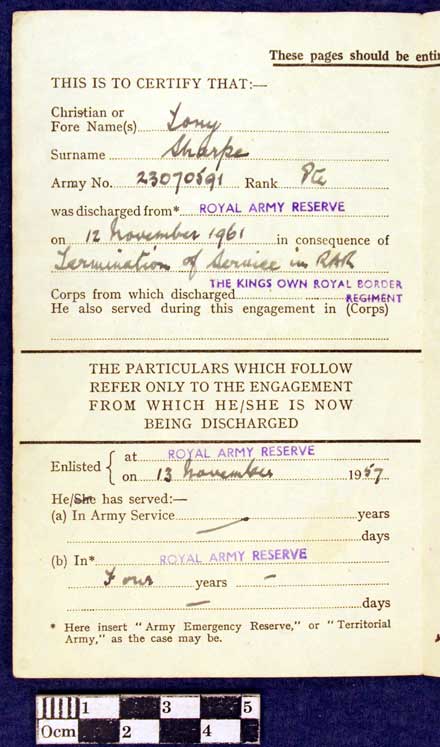 These pages should be entir
THIS IS TO CERTIFY THAT:—
Christian or
Fore Name(s) Tony
Surname Sharpe
Army No. 23070591 Rank Pte
was discharged from* ROYAL ARMY RESERVE
on 12 November 1961 in consequence of
Termination of Service in RAR
THE KINGS OWN ROYAL BORDER
Corps from which discharged REGIMENT
He also served during this engagement in (Corps)
THE PARTICULARS WHICH FOLLOW
REFER ONLY TO THE ENGAGEMENT
FROM WHICH HE/SHE IS NOW
BEING DISCHARGED
Enlisted { at ROYAL ARMY RESERVE
on 13 November 1957
He/She has served:—
(a) In Army Service — years
— days
(b) In* ROYAL ARMY RESERVE
Four years —
— days
* Here insert "Army Emergency Reserve," or "Territorial
Army," as the case may be.
1 3 5
0cm 2 4